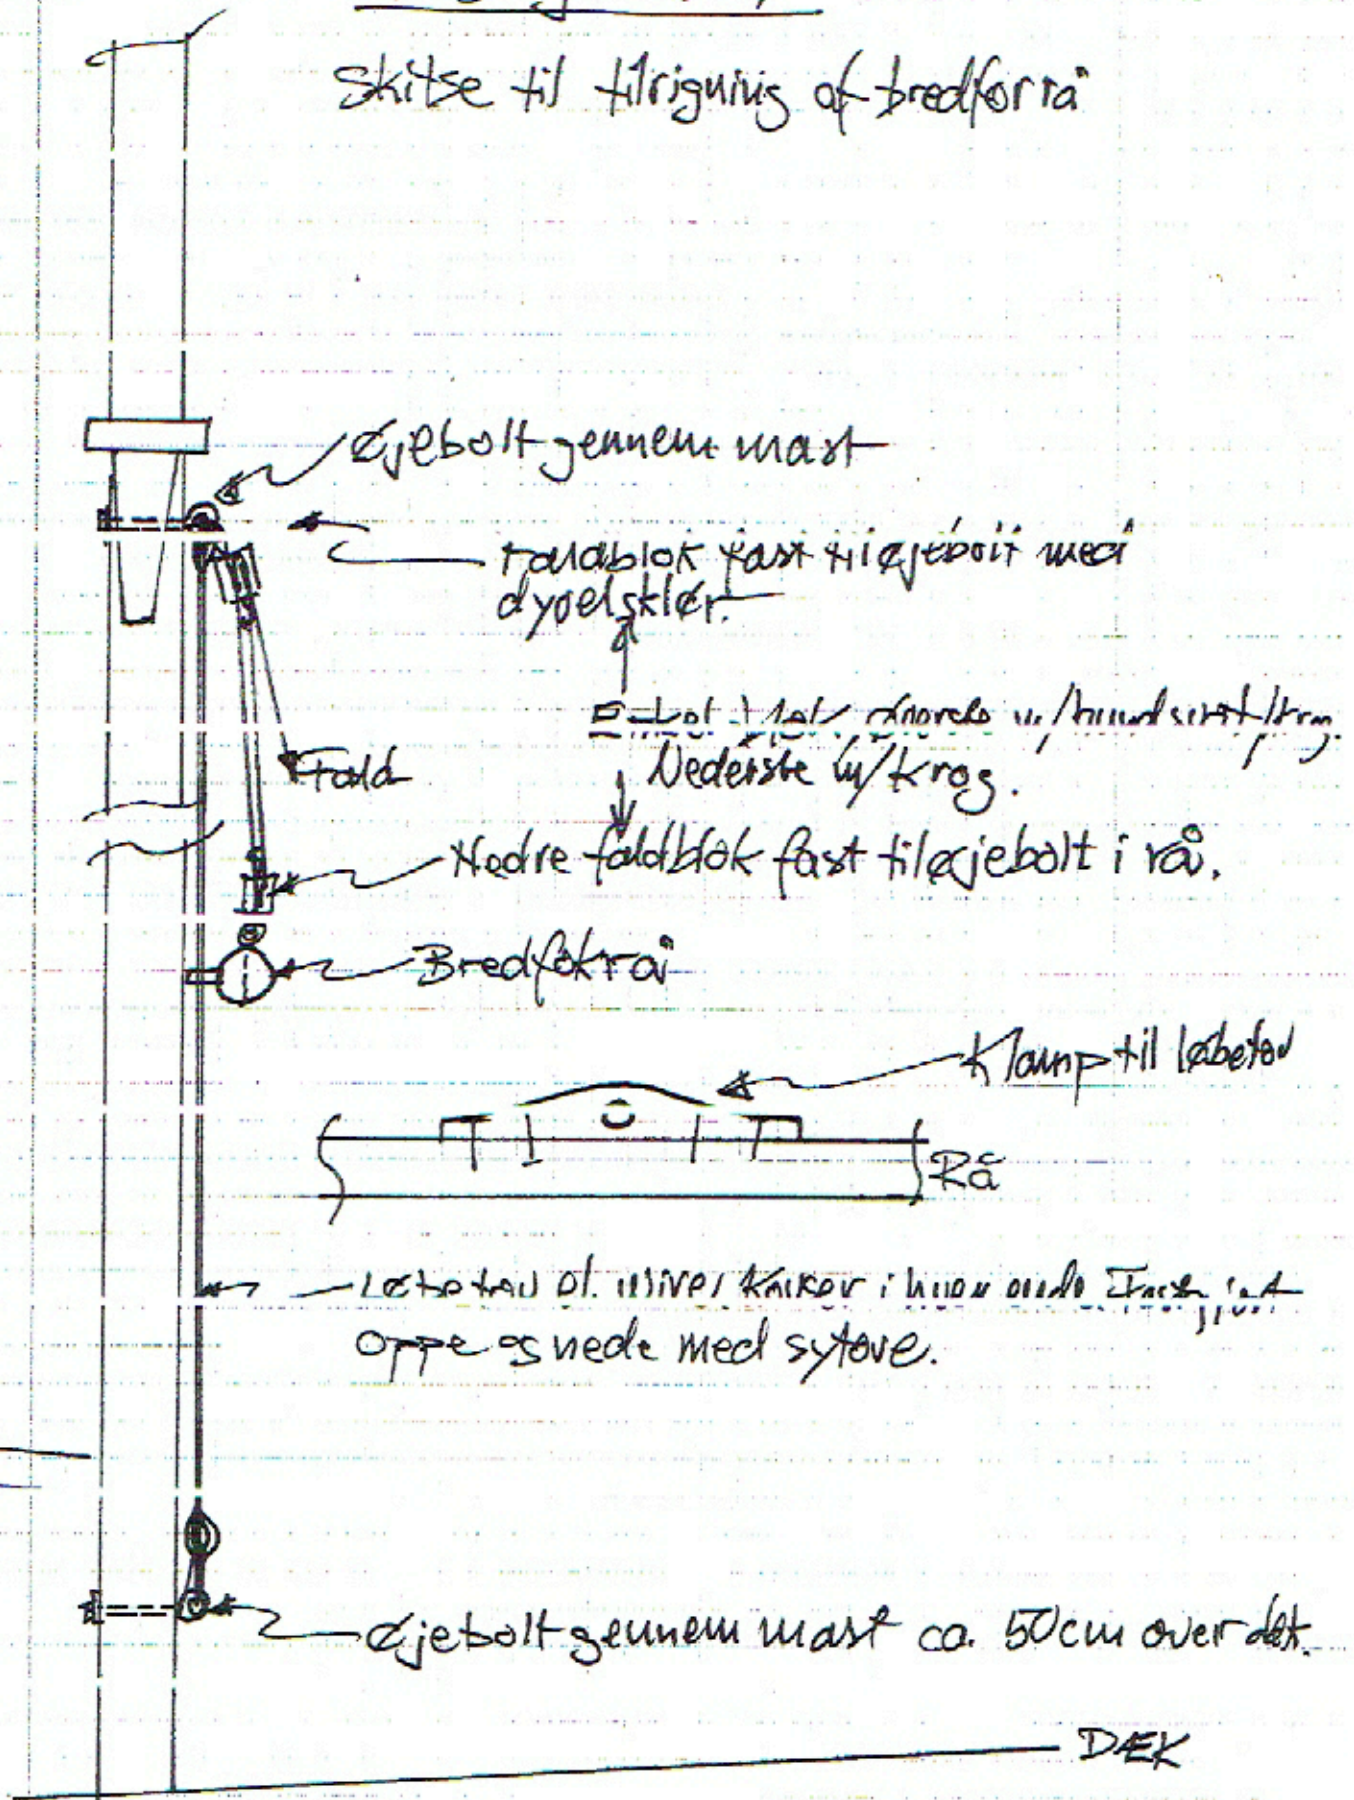 Skitse til tilrigning af bredforrå
Øjebolt gennem mast
Faldblok fast til øjebolt med
dyvelsklør.
Fald
Nederste m/krog.
Nedre faldblok fast til øjebolt i rå.
Bredfokrå
Klamp til løbetov
Rå
Løbetov af i hver ende
oppe og nede med sytove.
Øjebolt gennem mast ca. 50cm over dæk.
DÆK